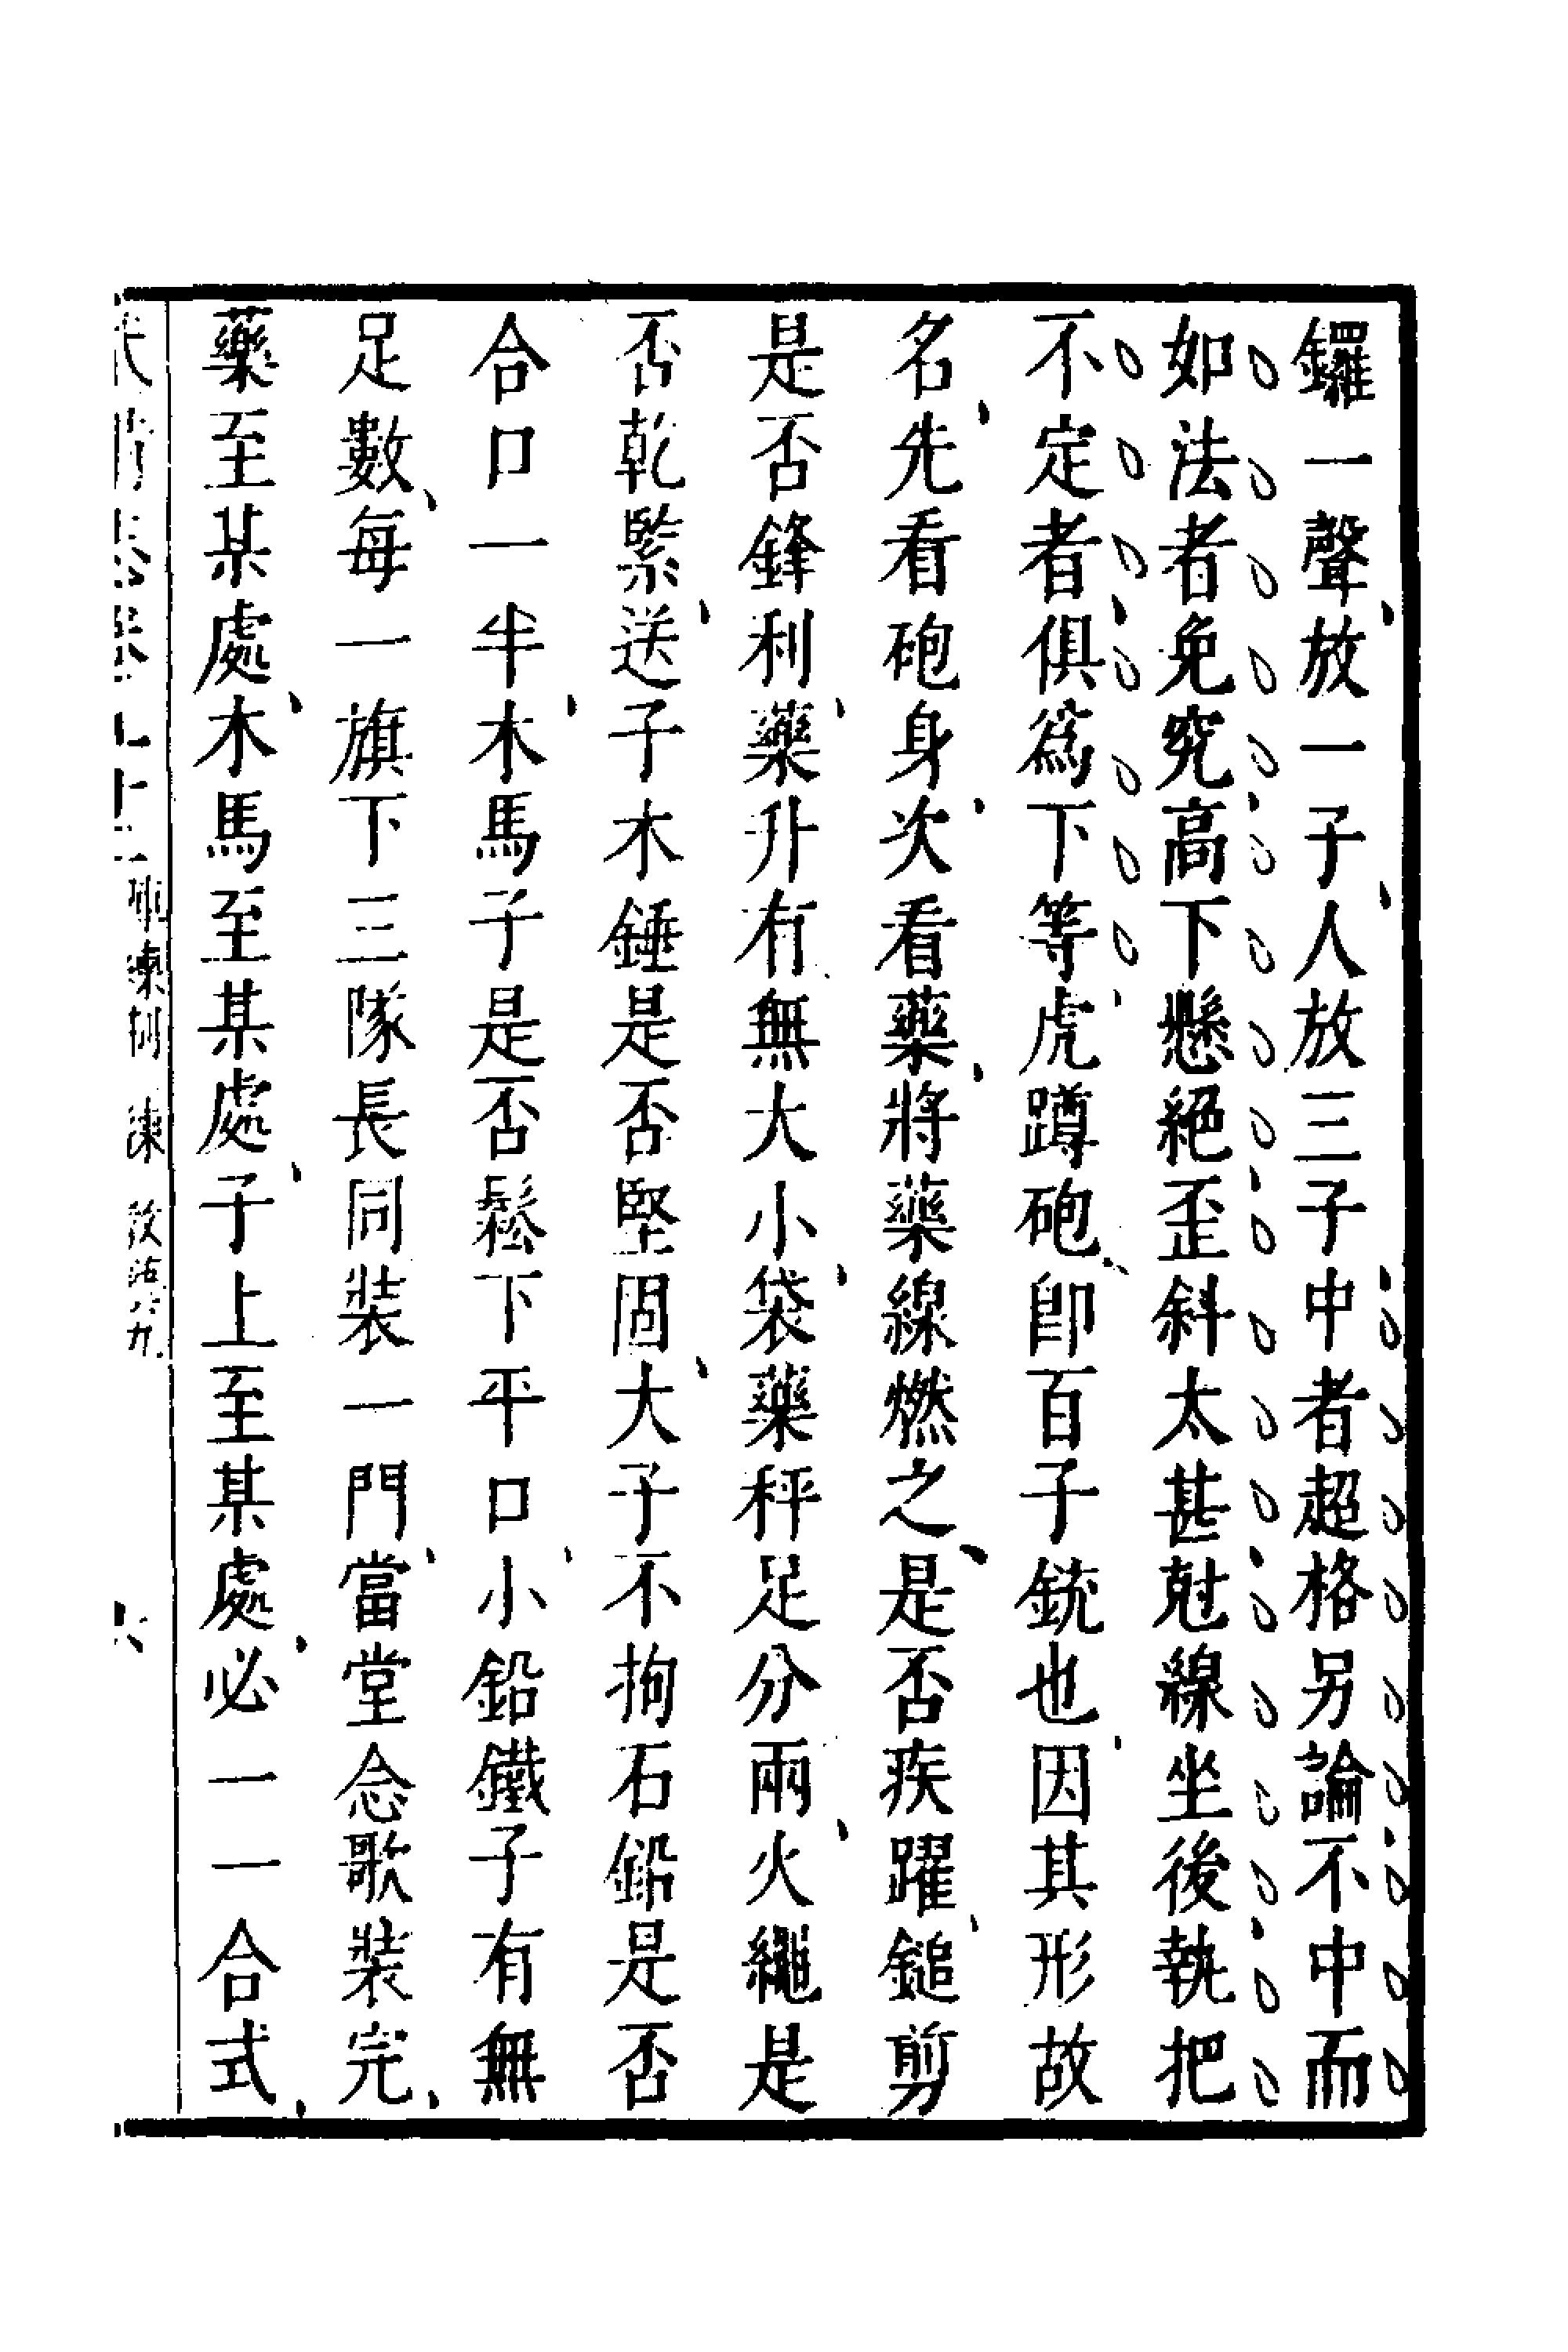 鑼一聲放一子人放三子中者超格另論不中而
如法者免究高下懸絕歪斜太甚尅線坐後執把
不定者俱爲下等虎蹲砲卽百子銃也因其形故
名先看砲身次看藥將藥線燃之是否疾躍鎚剪
是否鋒利藥升有無大小袋藥秤足分兩火繩是
否乾緊送子木錘是否堅固大子不拘石鉛是否
合口一半木馬子是否鬆下平口小鉛鐵子有無
足數每一旗下三隊長同裝一門當堂念歌裝完
藥至某處木馬至某處子上至某處必一一合式
練 教